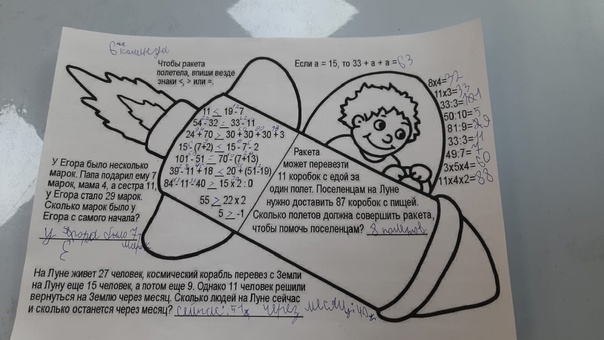 Чтобы ракета
полетела, впиши везде
знаки <, > или =.
Если a = 15, то 33 + a + a = 63
8х4=32
11х3=33
33:3=
50:10=5
81:9=
33:3=11
49:7=7
3х5х4=60
11х4х2=88
11 < 19 - 7
54 - 32 < 33 - 11
24 + 70 > 30 + 30 + 30 + 3
15 - (7+2) < 15 - 7 - 2
101 - 51 < 70 - (7+13)
39 - 11 + 18 < 20 + (51-19)
84 - 11 - 40 > 15 х 2 : 0
55 > 22 х 2
5 > -1
Ракета
может перевезти
11 коробок с едой за
один полет. Поселенцам на Луне
нужно доставить 87 коробок с пищей.
Сколько полетов должна совершить ракета,
чтобы помочь поселенцам? 8 полетов
У Егора было несколько
марок. Папа подарил ему 7
марок, мама 4, а сестра 11,
у Егора стало 29 марок.
Сколько марок было у
Егора с самого начала?
У Егора было 7
марок
На Луне живет 27 человек, космический корабль перевез с Земли
на Луну еще 15 человек, а потом еще 9. Однако 11 человек решили
вернуться на Землю через месяц. Сколько людей на Луне сейчас
и сколько останется через месяц? сейчас: 51 через месяц: 40